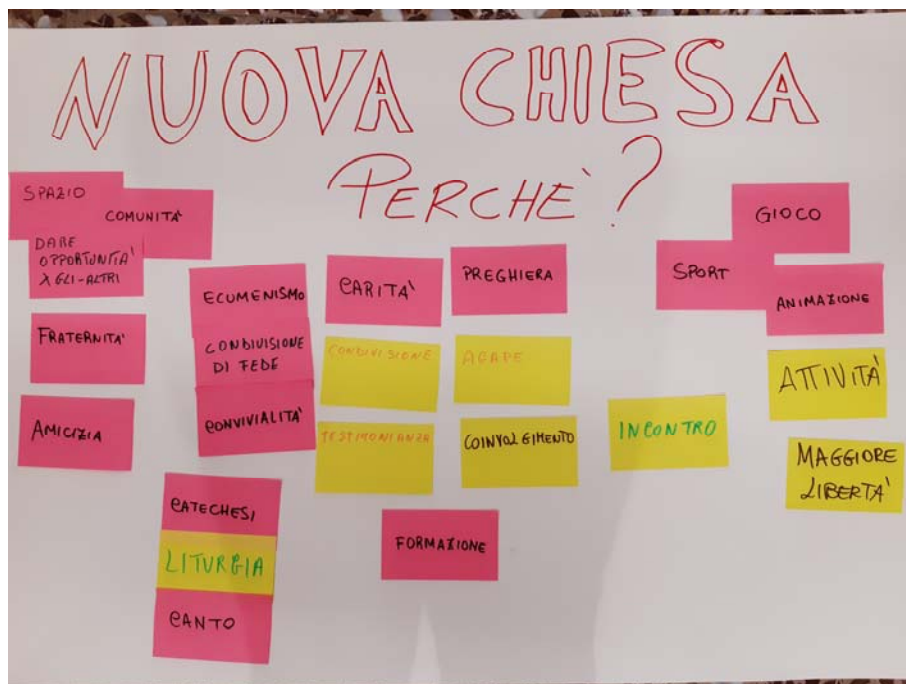 NUOVA CHIESA
PERCHÈ?
SPAZIO
COMUNITÀ
DARE
OPPORTUNITÀ
X GLI-ALTRI
FRATERNITÀ
AMICIZIA
ECUMENISMO
CONDIVISIONE
DI FEDE
CONVIVIALITÀ
CATECHESI
LITURGIA
CANTO
CARITÀ
CONDIVISIONE
TESTIMONIANZA
PREGHIERA
AGAPE
COINVOLGIMENTO
FORMAZIONE
INCONTRO
GIOCO
SPORT
ANIMAZIONE
ATTIVITÀ
MAGGIORE
LIBERTÀ